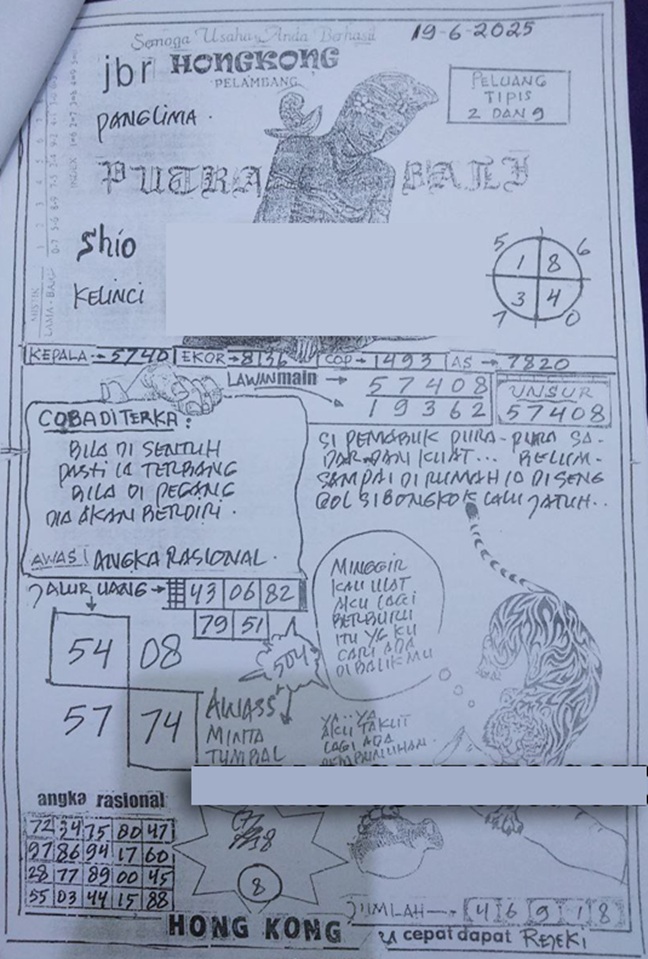 Semoga Usaha Anda Berhasil
19-6-2025
jbr HONGKONG
PELAMBANG
PANGLIMA.
PELUANG
TIPIS
2 DAN 9
PUTRA BALI
Shio
KELINCI
5 6
1 8
3 4
7 0
KEPALA → 5740 EKOR → 8136 COP → 1493 AS → 7820
LAWAN main → 57408
19362
UNSUR
57408
COBA DI TERKA:
BILA DI SENTUH
PASTI IA TERBANG
BILA DI PEGANG
DIA AKAN BERDIRI.
AWASI ANGKA RASIONAL.
SI PEMABUK PURA-PURA SA-
DAR DAN KUAT... BELUM-
SAMPAI DI RUMAH IA DI SENG
GOL SI BONGKOK LALU JATUH..
JALUR UANG → 43 06 82
79 51
MINGGIR
KAU ULAT
AKU LAGI
BERBURU
ITU YG KU
CARI ADA
DI BALIK MU
504
54 08
57 74
AWASS
MINTA
TUMBAL
YA..YA
AKU TAKUT
LAGI ADA
angka rasional
72 34 75 80 47
97 86 94 17 60
28 77 89 00 45
55 03 44 15 88
8
HONG KONG
JUMLAH → 4 6 9 1 8
cepat dapat REJEKI